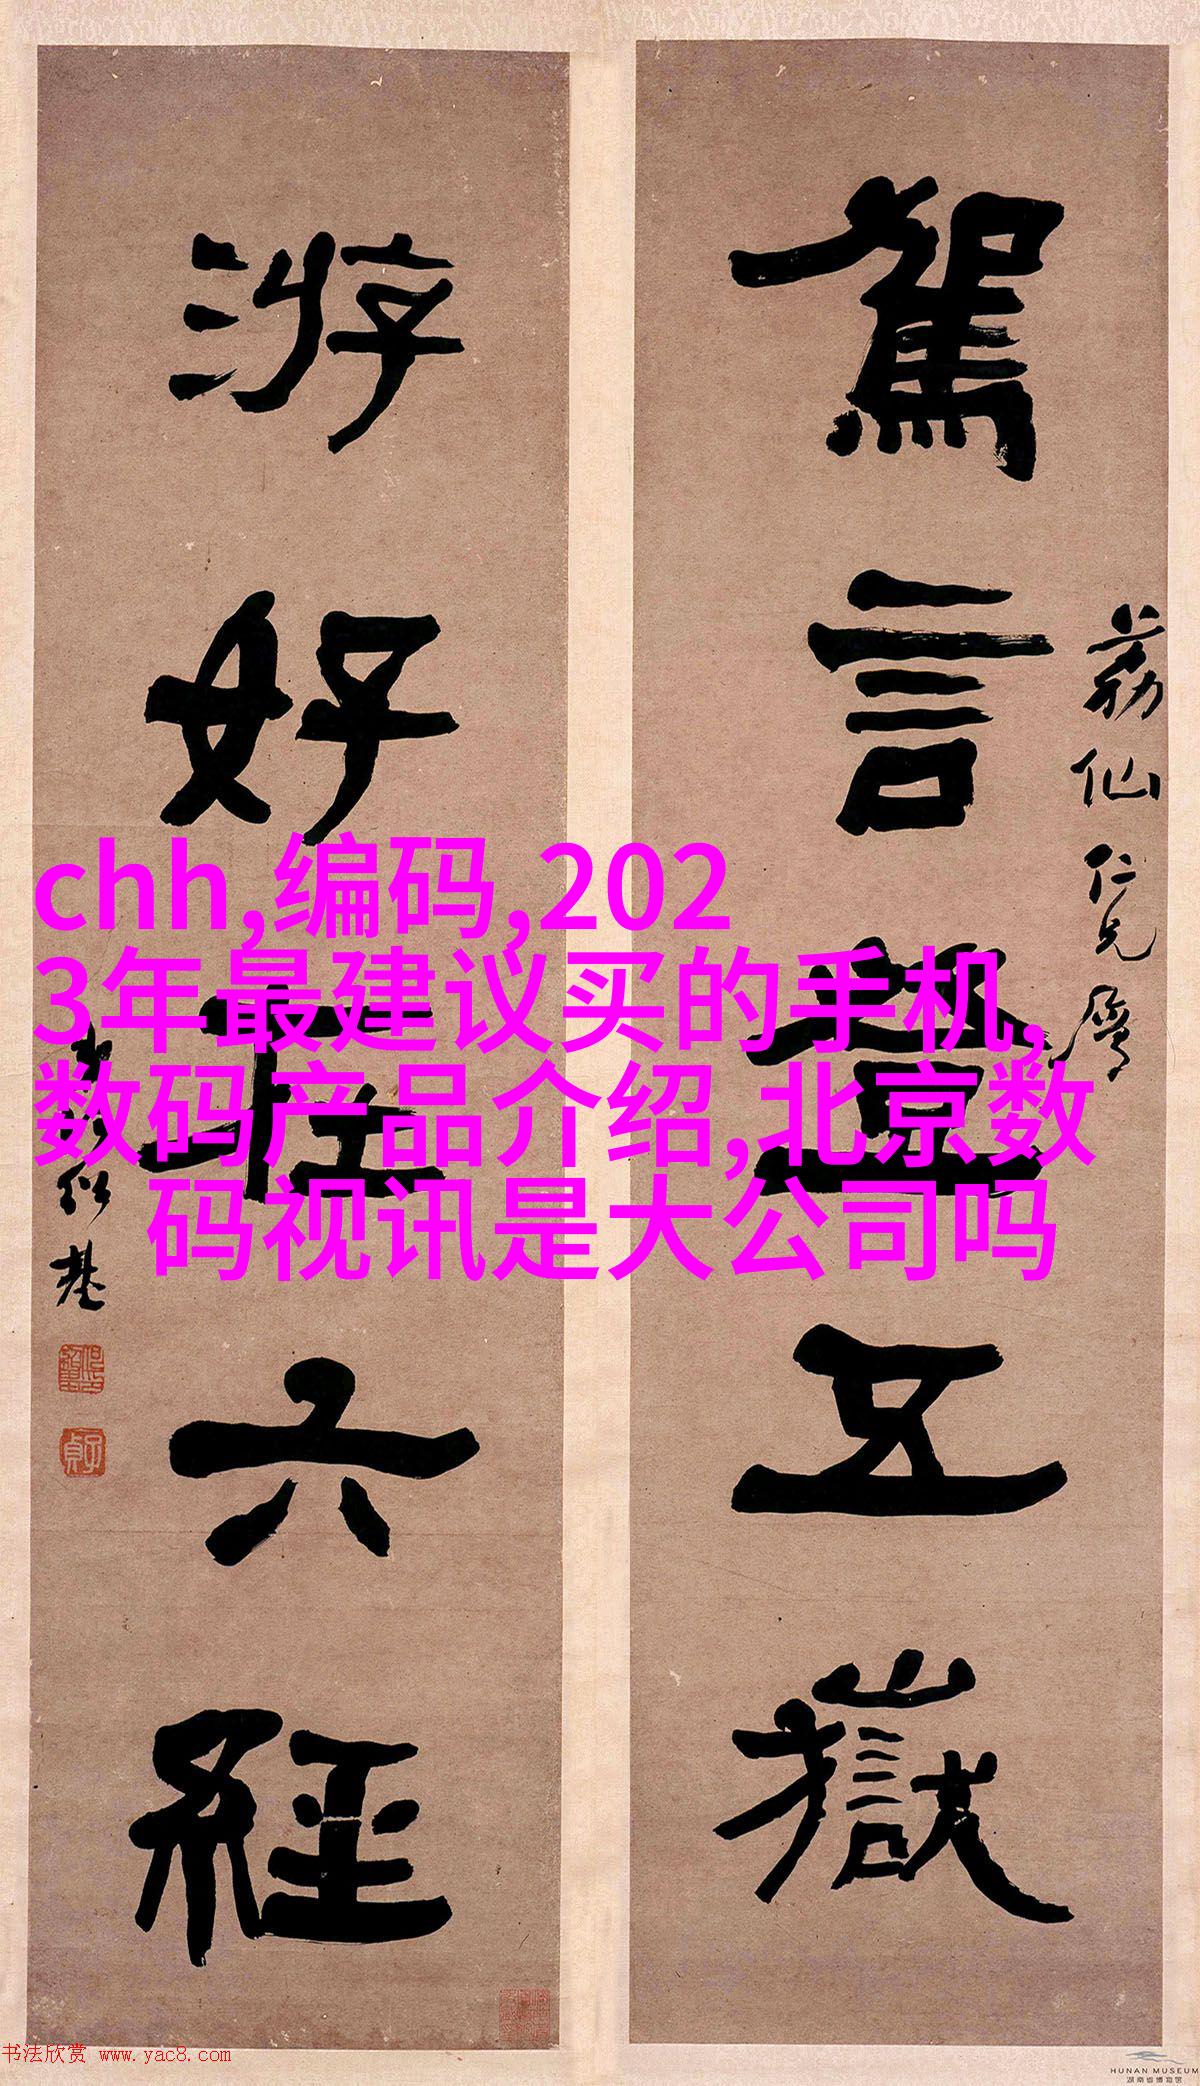 駕言登五嶽
荔仙仁兄屬
游好在六經
何紹基
chh,编码,202
3年最建议买的手机,
数码产品介绍,北京数
码视讯是大公司吗
书法欣赏 www.yac8.com
HUNAN MUSEUM
湖南省博物馆